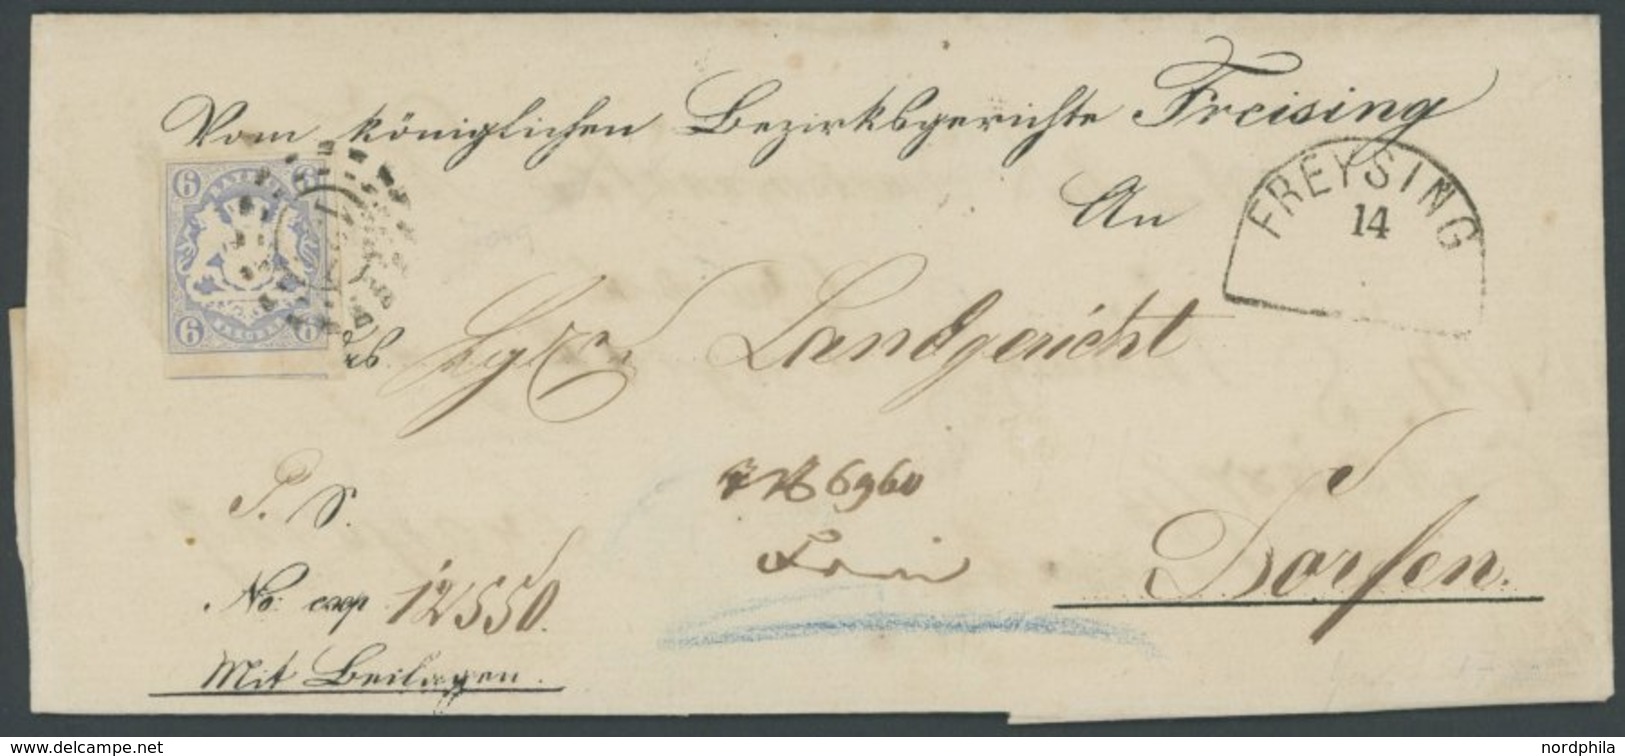 Vom königlichen Bezirksgerichte Freising
An
FREYSING
14
6 BAYERN 6
6 6
Landgericht
6960
Dorfen.
P. S.
No: exp. 12550.
Mit Beilagen.
www.delcampe.net
nordphila